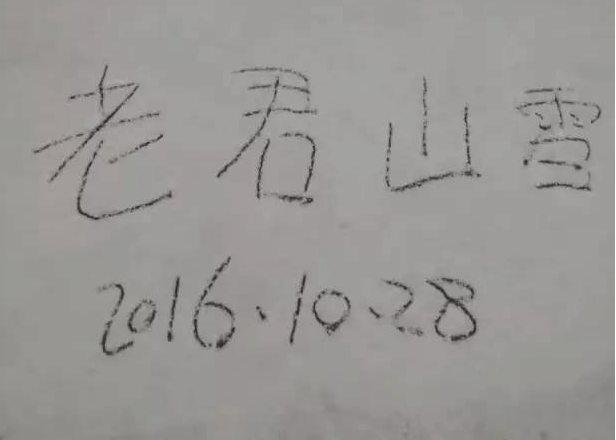 老君山雪
2016.10.28